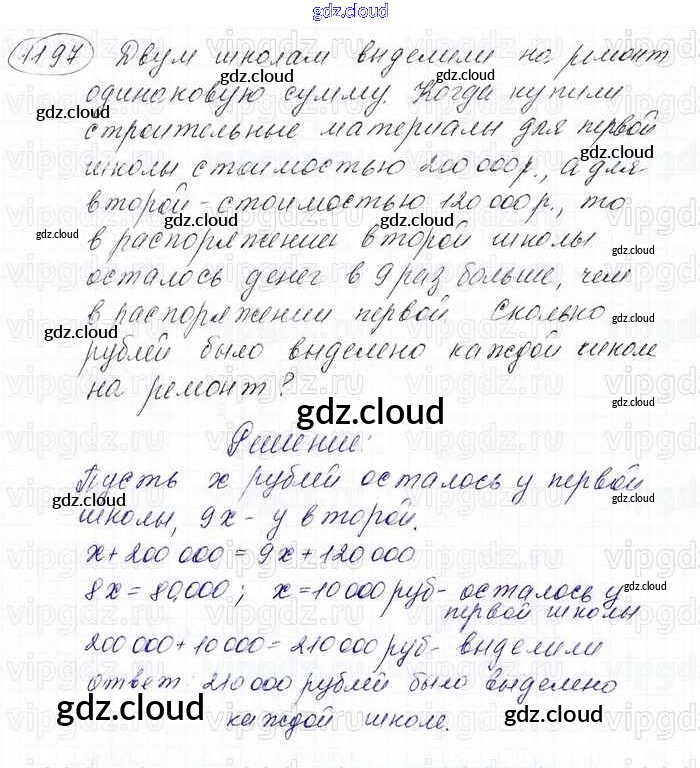 gdz.cloud
1197 Двум школам выделили на ремонт
одинаковую сумму. Когда купили
строительные материалы для первой
школы стоимостью 200 000 р., а для
второй - стоимостью 120 000 р., то
в распоряжении второй школы
осталось денег в 9 раз больше, чем
в распоряжении первой. Сколько
рублей было выделено каждой школе
на ремонт?
gdz.cloud
Решение:
Пусть x рублей осталось у первой
школы, 9x - у второй.
x + 200 000 = 9x + 120 000
8x = 80 000; x = 10 000 руб - осталось у
первой школы
200 000 + 10 000 = 210 000 руб - выделили
ответ: 210 000 рублей было выделено
каждой школе.
gdz.cloud